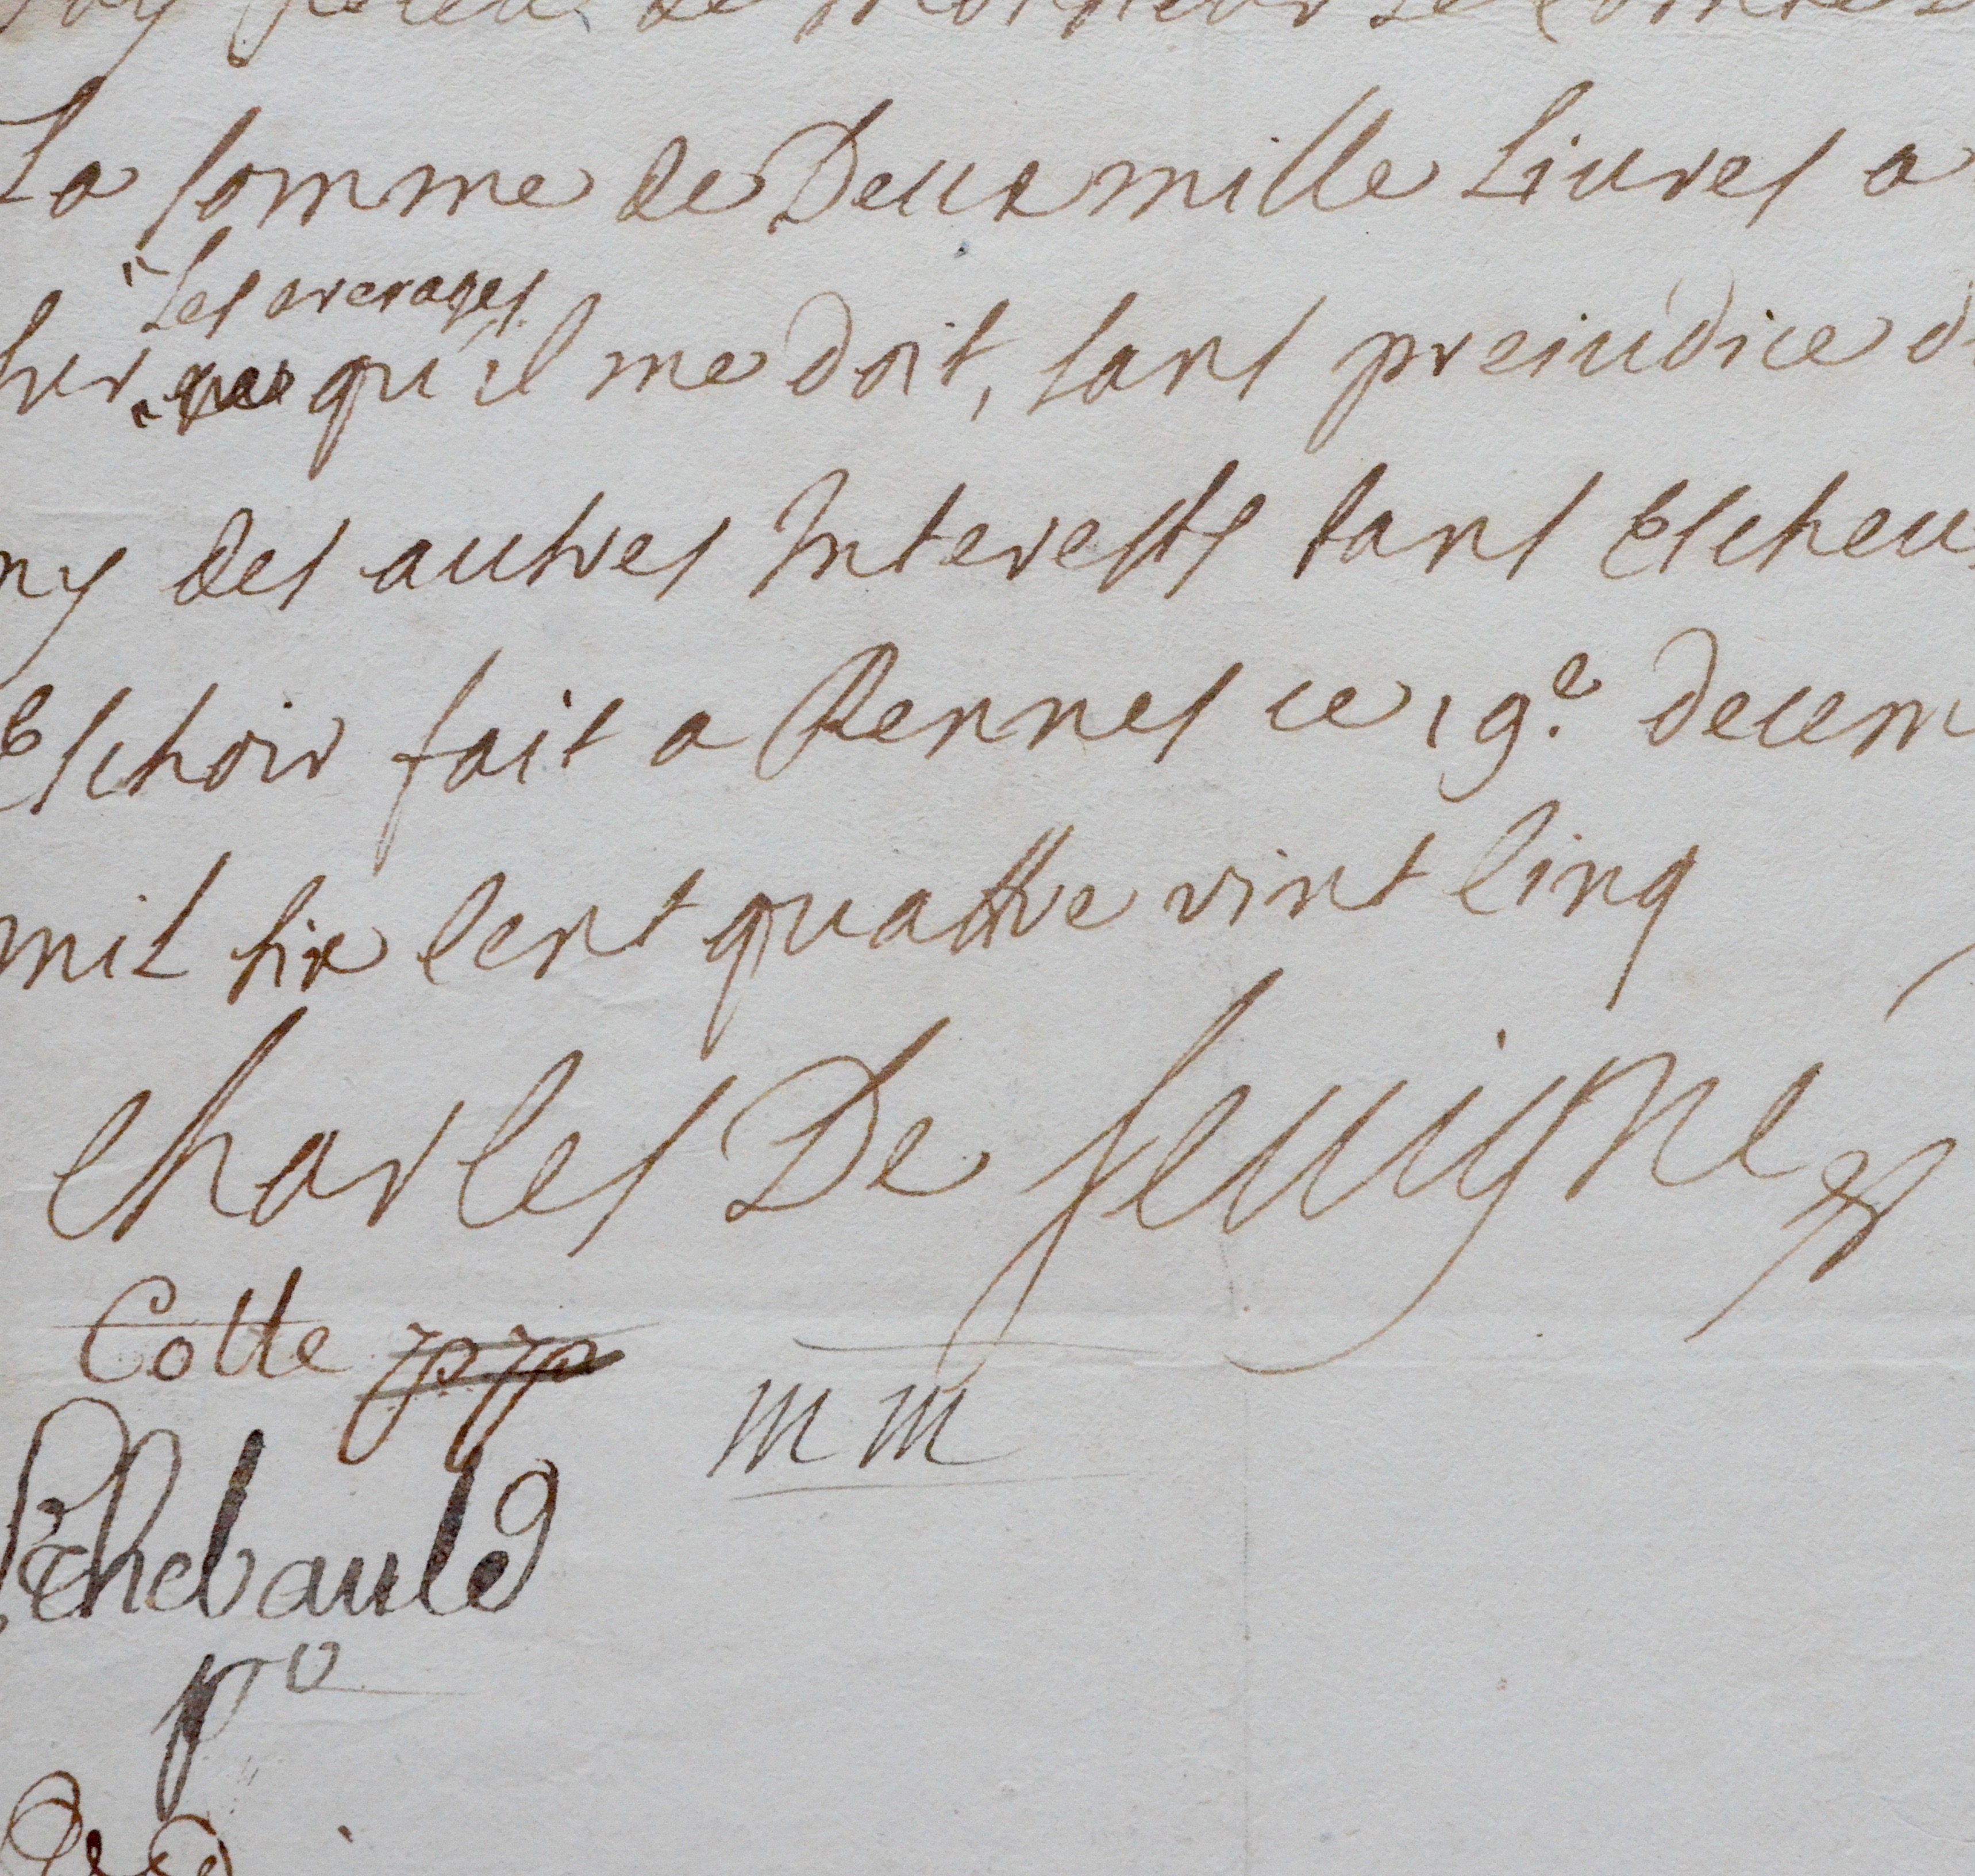 de monsieur le comte
La somme de Deux mille Liures a
Les arerages
sur qu'il me doit, sans preiudice d
ny des autres Interests tans Escheus
Eschoir fait a Rennes ce 19e decem
mil six cent quattre vint cinq
Charles De Seuigné
Cotte
mm
Thebauld
po